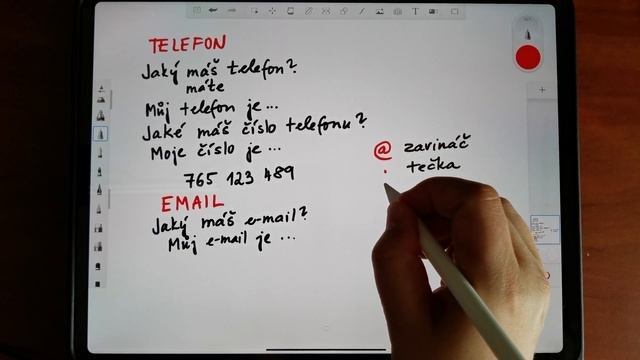 TELEFON
Jaký máš telefon?
máte
Můj telefon je ...
Jaké máš číslo telefonu?
Moje číslo je ...
765 123 489
EMAIL
Jaký máš e-mail?
Můj e-mail je ...
@ zavináč
. tečka